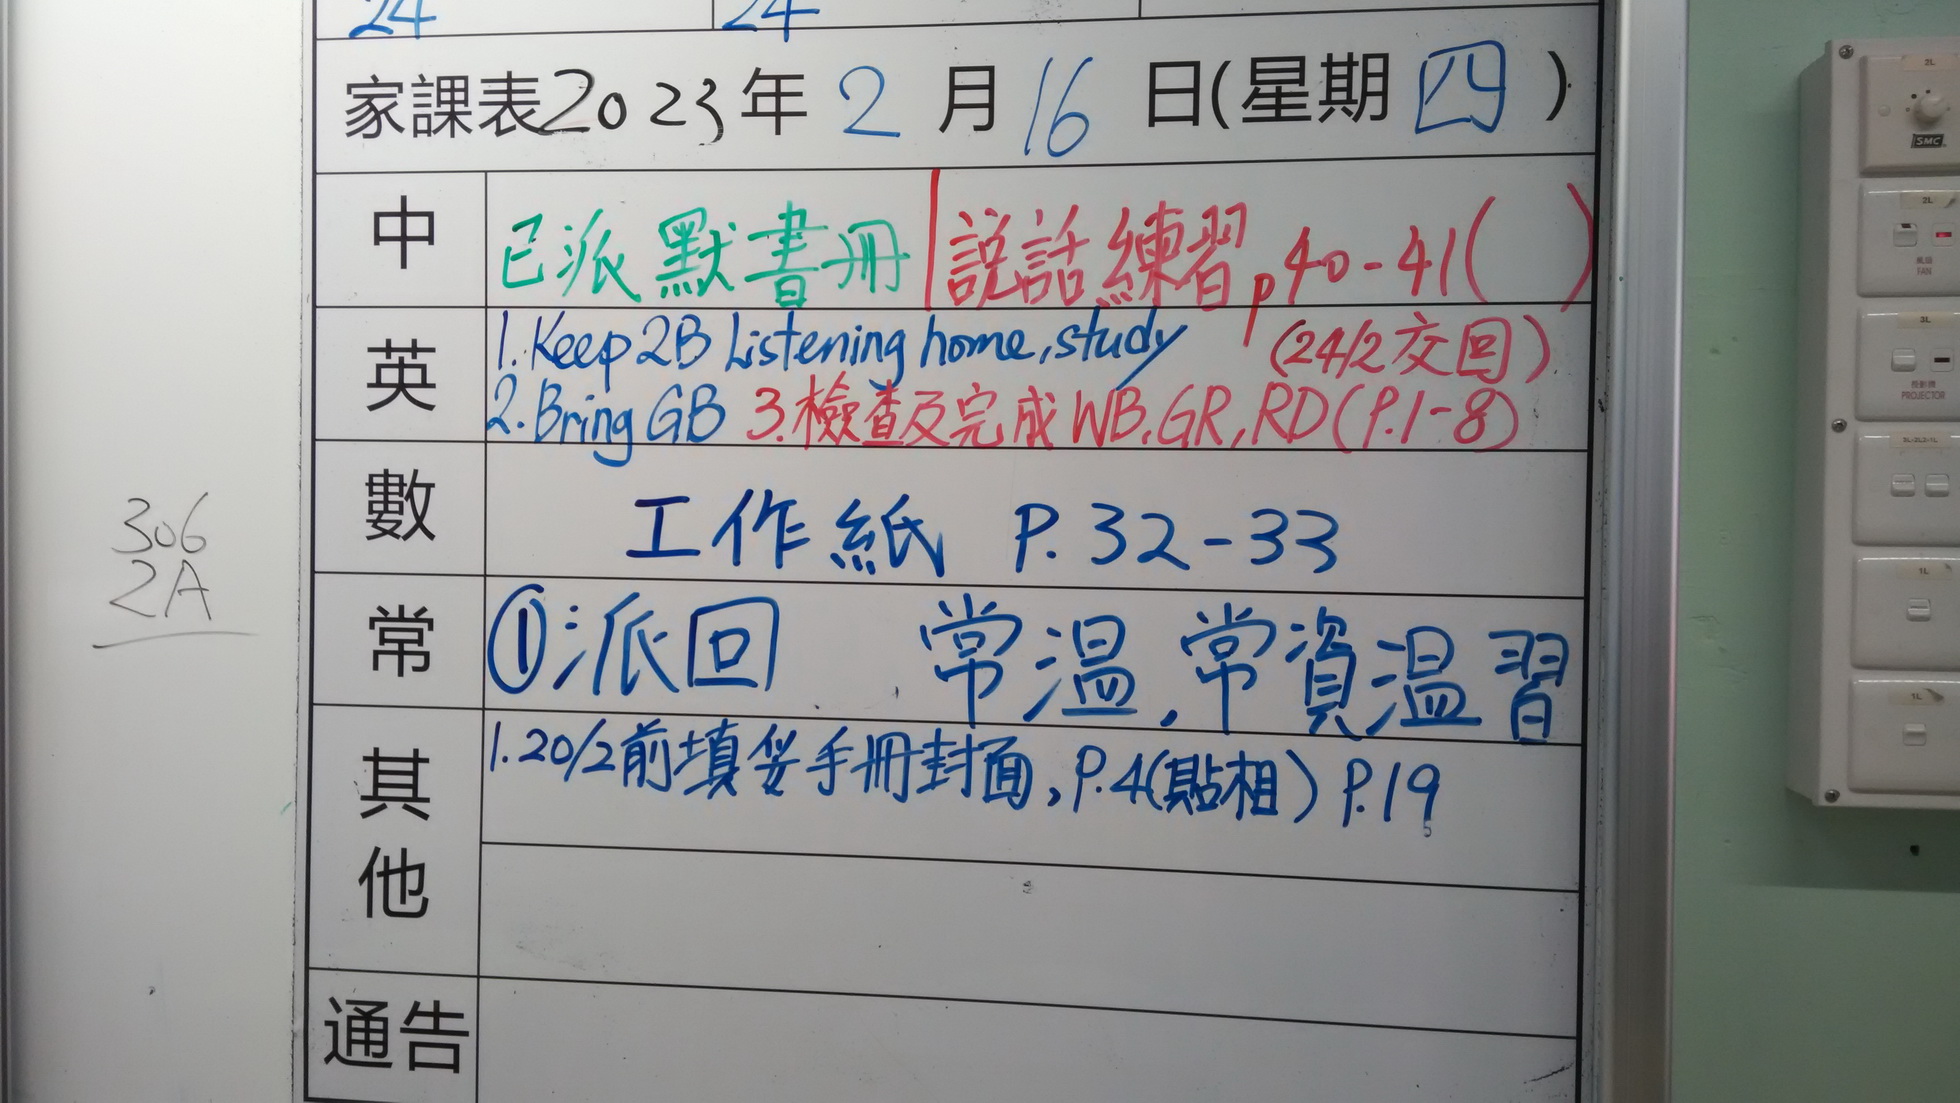 24 24
家課表2023年2月16日(星期四)
中 已派默書冊 説話練習p40-41( )
英 1.Keep 2B Listening home,study (24/2交回)
2.Bring GB 3.檢查及完成WB,GR,RD(P.1-8)
數 工作紙 P.32-33
常 ①派回 常溫,常資溫習
其他 1.20/2前填妥手冊封面,P.4(貼相) P.19
通告
306
2A
2L
SMC
2L
風扇
FAN
3L
投影機
PROJECTOR
1L
1L